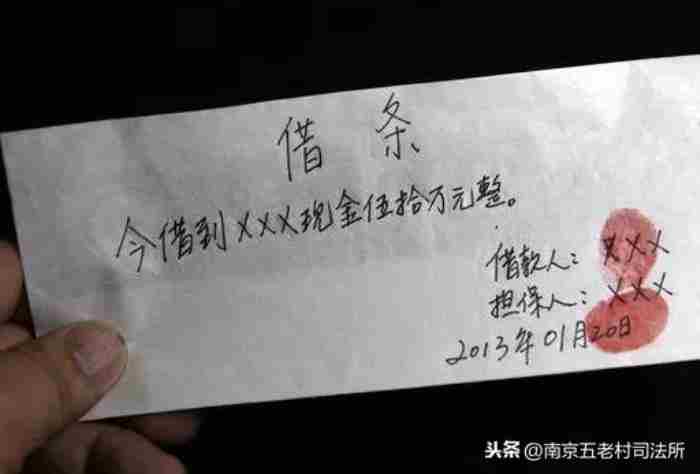 借条
今借到XXX现金伍拾万元整。
借款人：XXX
担保人：XXX
2013年01月20日
头条 @南京五老村司法所